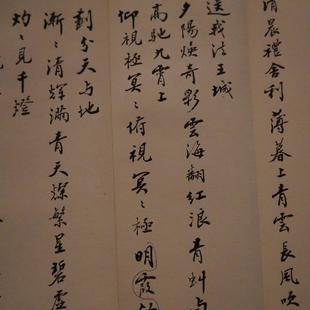 清晨禮舍利薄暮上青雲長風吹
送我法王城
夕陽煥奇彩雲海翻紅浪青虬与
高馳九霄上
仰視極冥〻俯視冥〻極明霞
劃分天与地
漸〻清輝滿青天燦繁星碧虛
灼〻見千燈